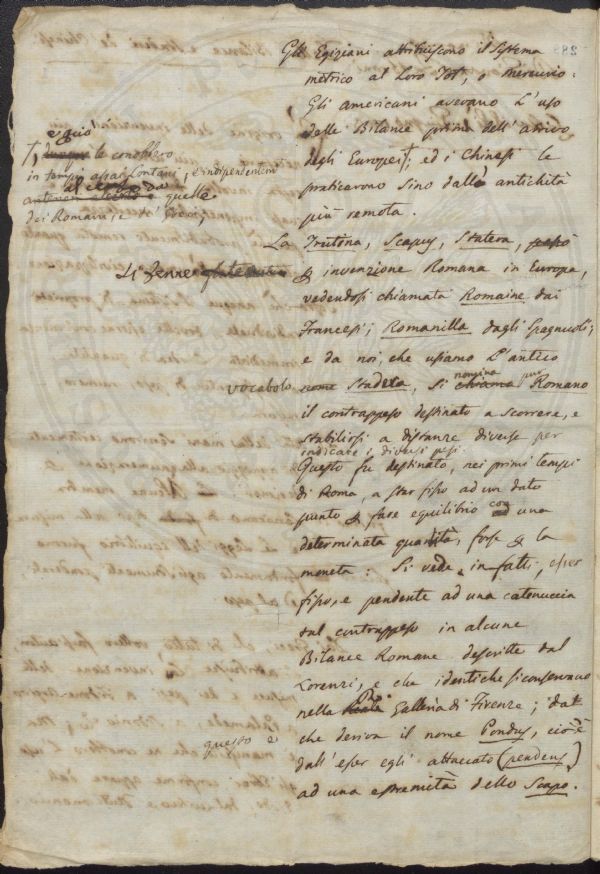 Gli Egiziani attribuiscono il sistema
metrico al loro Tot, o mercurio.
Gli americani avevano l'uso
delle Bilance prima dell'arrivo
degli Europei†; ed i Chinesi le
praticarono sino dalla antichità
più remota.
†, e quió
le conobbero
in tempi assai lontani, e indipendenti
da quelle
dei Romani, e de' Greci,
La Trutina, Scapus, Statera,
è invenzione Romana in Europa,
vedendosi chiamata Romaine dai
Francesi; Romanilla dagli Spagnuoli;
e da noi, che usiamo l'antico
vocabolo Stadera, si nomina pur Romano
il contrappeso destinato a scorrere, e
stabilirsi a distanze diverse per
indicare i diversi pesi.
Questo fu destinato, nei primi tempi
di Roma, a star fisso ad un dato
punto & fare equilibrio con una
determinata quantità, forse & la
moneta: Si vede in fatti, esser
fisso, e pendente ad una catenuccia
sul contrappeso in alcune
Bilance Romane descritte dal
Lorenzi, e che identiche si conservano
nella Galleria di Firenze; dal
che deriva il nome Pondus, cioè
questo è
dall'esser egli attaccato (pendens)
ad una estremità dello Scapo.